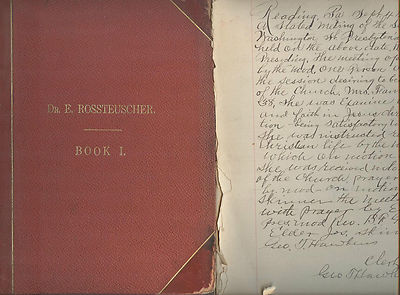 DR. E. ROSSTEUSCHER.
BOOK I.
Reading, Pa Sept
A Stated meeting of the
Washington St Presbyteria
held on the above date,
Presiding, the meeting op
by the mod, One Person
the session desiring to
of the Church, Mrs.
58, She was Examine
and faith in Jesus
tion being satisfactory
She was instructed
Christian life by the
which on motion
She was received into
of the Church prayer
by mod - on motion
Skinner the meet
with prayer by
pres mod Geo.
Elder Jos. Skin
Geo. T. Hawkins
Clerk
Geo T. Hawk